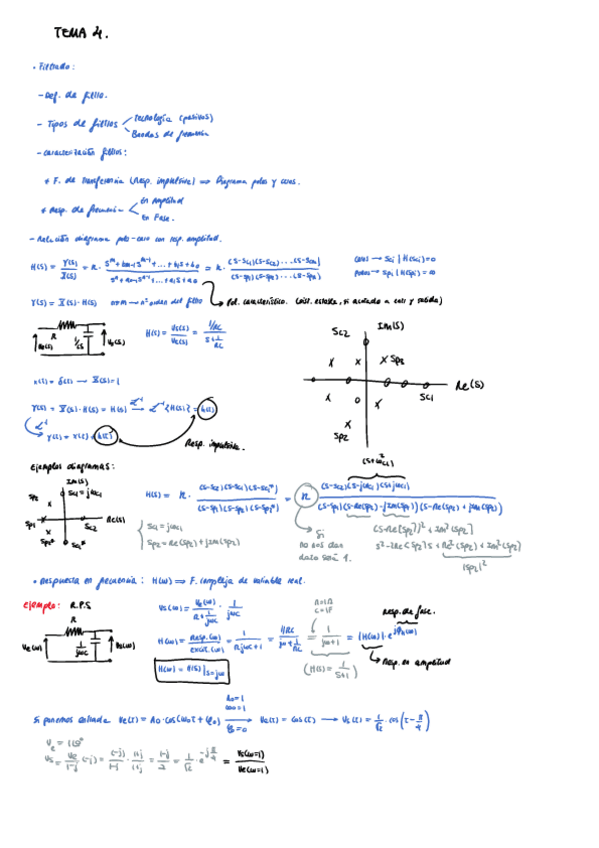 TEMA 4.
• Filtrado:
- Def. de filtro.
- Tipos de filtros
Tecnología (pasivos)
Bandas de frecuencia
- Caracterización filtros:
* F. de Transferencia (Resp. impulsiva) ⇒ Diagrama polos y ceros.
* Resp. de frecuencia
en Amplitud
en Fase.
- Relación diagrama polo-cero con resp. amplitud.
H(s) = Y(s)/X(s) = K · (s^m + b_{m-1} s^{m-1} + ... + b_1 s + b_0)/(s^n + a_{n-1} s^{n-1} + ... + a_1 s + a_0) = K · (s-s_{c1})(s-s_{c2})...(s-s_{cm})/(s-s_{p1})(s-s_{p2})...(s-s_{pn})
ceros → s_{ci} | H(s_{ci}) = 0
polos → s_{pi} | H(s_{pi}) = ∞
Y(s) = X(s)·H(s)
→ nº orden del filtro
Pol. característico.
R
1/CS
Ve(s)
Vs(s)
H(s) = Vs(s)/Ve(s) = (1/RC)/(s + 1/RC)
Im(s)
Sc2
Sp3
Re(s)
Sc1
Sp2
x(t) = δ(t) → X(s) = 1
Y(s) = X(s)·H(s) = H(s) → L^{-1} {H(s)} = h(t)
L^{-1}
y(t) = x(t) * h(t)
Resp. impulsiva.
Ejemplos diagramas:
Im(s)
Sp2
Sc1 = jωc1
Sp1
Sc2
Re(s)
Sp2*
Sc1*
H(s) = K · (s-s_{c2})(s-s_{c1})(s-s_{c1}*)/(s-s_{p1})(s-s_{p2})(s-s_{p2}*) = K (s-s_{c2})(s-jωc1)(s+jωc1)/(s-s_{p1})(s-Re(s_{p2})-jIm(s_{p2}))(s-Re(s_{p2})+jIm(s_{p2}))
(s²+ω²c1)
Sc1 = jωc1
Sp2 = Re(sp2) + jIm(sp2)
Si
no nos dan
dato será 1.
(s-Re[sp2])² + Im²[sp2]
s² - 2Re[sp2]s + Re²(sp2) + Im²(sp2)
|sp2|²
• Respuesta en frecuencia: H(ω) ⇒ F. compleja de variable real.
Ejemplo: R.P.S
R
Ve(ω)
1/jωC
Vs(ω)
Vs(ω) = Ve(ω)/(R + 1/jωC) · 1/jωC
H(ω) = Resp.(ω)/excit.(ω) = 1/(RjωC+1) = (1/RC)/(jω + 1/RC) = 1/(jω+1) = |H(ω)| · e^{jφ_H(ω)}
R=1Ω
C=1F
Resp. de fase.
Resp. en amplitud
(H(s) = 1/(s+1))
H(ω) = H(s)|_{s=jω}
Si ponemos entrada Ve(t) = A0·cos(ω0t + φ0) → Ve(t) = cos(t) → Vs(t) = 1/√2 cos(t - π/4)
A0=1
ω0=1
φ0=0